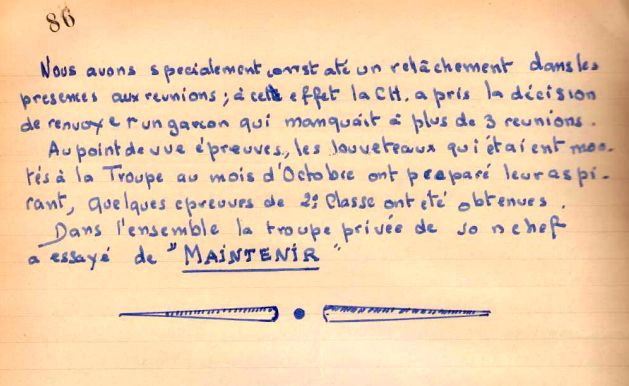 86
Nous avons specialement constaté un relâchement dans les
presences aux reunions; à cette effet la CH. a pris la décision
de renvoyer un garcon qui manquait à plus de 3 reunions.
Au point de vue épreuves, les louveteaux qui étaient mon-
tés à la Troupe au mois d'Octobre ont preparé leur aspi-
rant, quelques epreuves de 2e Classe ont eté obtenues.
Dans l'ensemble la troupe privée de son chef
a essayé de "MAINTENIR"